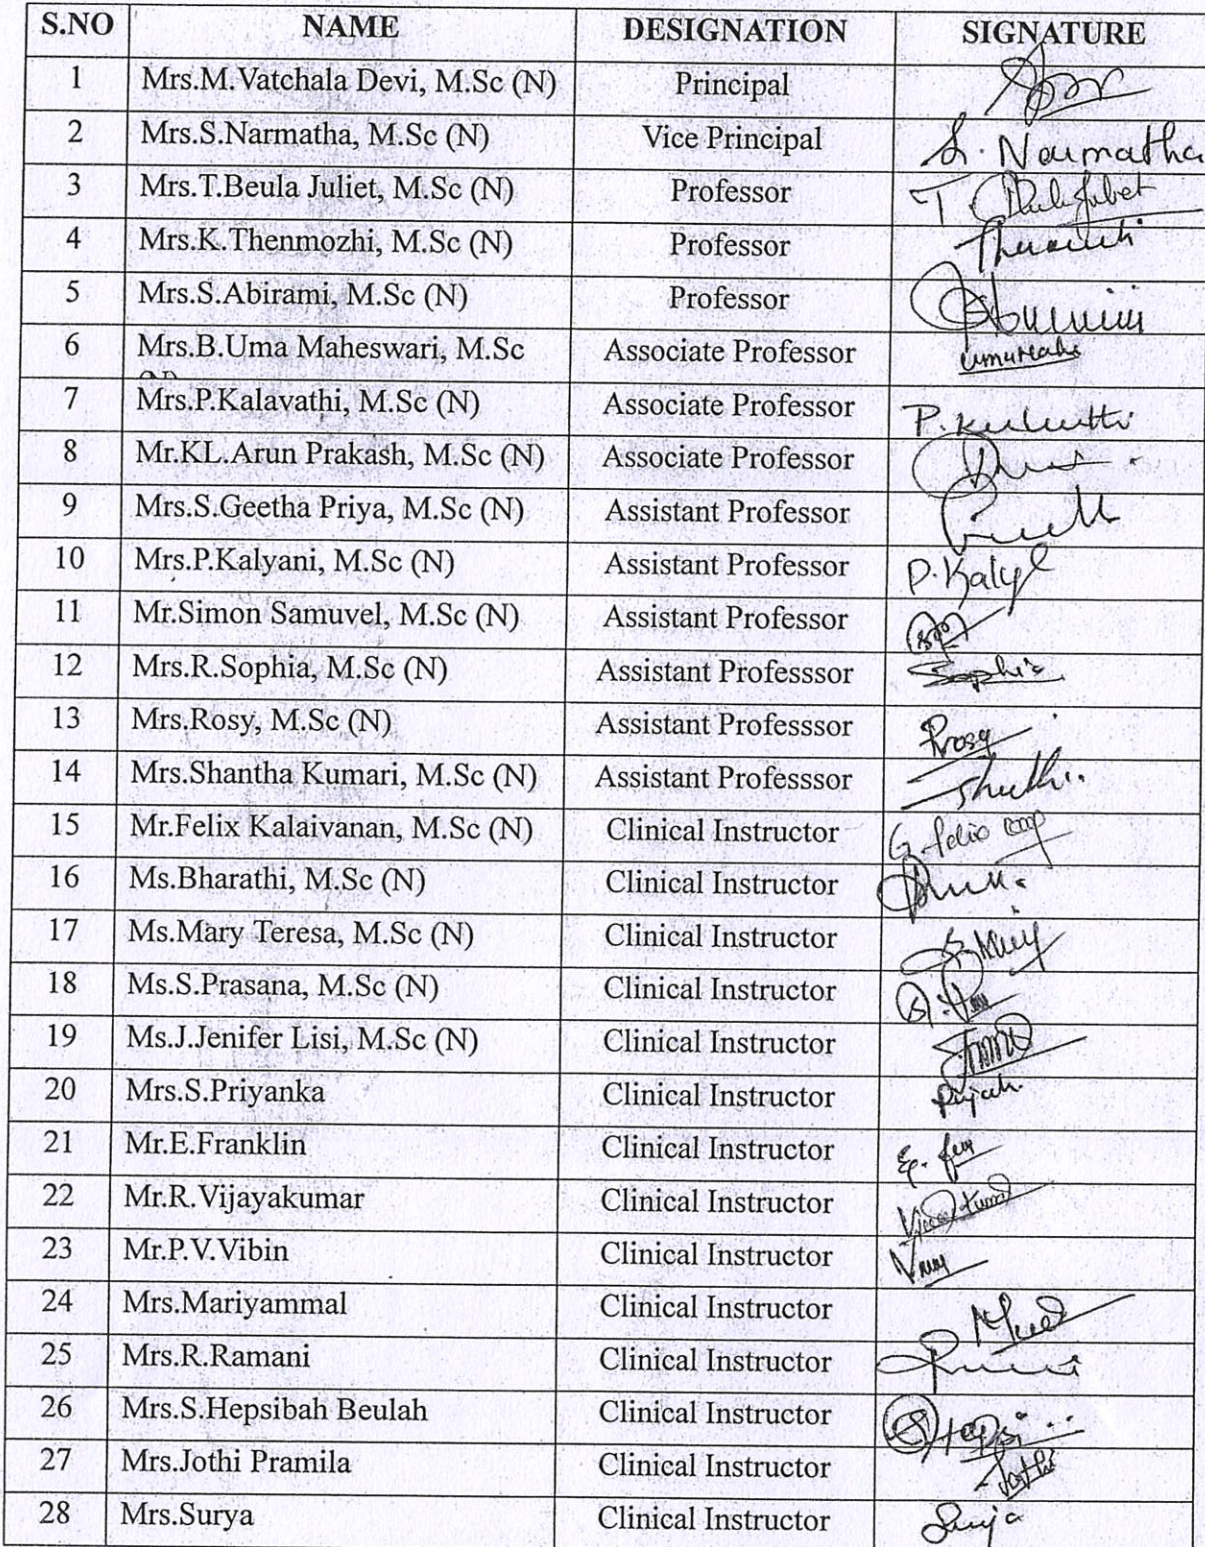 S.NO NAME DESIGNATION SIGNATURE
1 Mrs.M.Vatchala Devi, M.Sc (N) Principal
2 Mrs.S.Narmatha, M.Sc (N) Vice Principal S. Narmatha
3 Mrs.T.Beula Juliet, M.Sc (N) Professor T.
4 Mrs.K.Thenmozhi, M.Sc (N) Professor
5 Mrs.S.Abirami, M.Sc (N) Professor
6 Mrs.B.Uma Maheswari, M.Sc Associate Professor
7 Mrs.P.Kalavathi, M.Sc (N) Associate Professor P.
8 Mr.KL.Arun Prakash, M.Sc (N) Associate Professor
9 Mrs.S.Geetha Priya, M.Sc (N) Assistant Professor
10 Mrs.P.Kalyani, M.Sc (N) Assistant Professor
11 Mr.Simon Samuvel, M.Sc (N) Assistant Professor
12 Mrs.R.Sophia, M.Sc (N) Assistant Professsor
13 Mrs.Rosy, M.Sc (N) Assistant Professsor Rosy
14 Mrs.Shantha Kumari, M.Sc (N) Assistant Professsor
15 Mr.Felix Kalaivanan, M.Sc (N) Clinical Instructor
16 Ms.Bharathi, M.Sc (N) Clinical Instructor
17 Ms.Mary Teresa, M.Sc (N) Clinical Instructor
18 Ms.S.Prasana, M.Sc (N) Clinical Instructor
19 Ms.J.Jenifer Lisi, M.Sc (N) Clinical Instructor
20 Mrs.S.Priyanka Clinical Instructor
21 Mr.E.Franklin Clinical Instructor
22 Mr.R.Vijayakumar Clinical Instructor
23 Mr.P.V.Vibin Clinical Instructor
24 Mrs.Mariyammal Clinical Instructor
25 Mrs.R.Ramani Clinical Instructor
26 Mrs.S.Hepsibah Beulah Clinical Instructor
27 Mrs.Jothi Pramila Clinical Instructor
28 Mrs.Surya Clinical Instructor